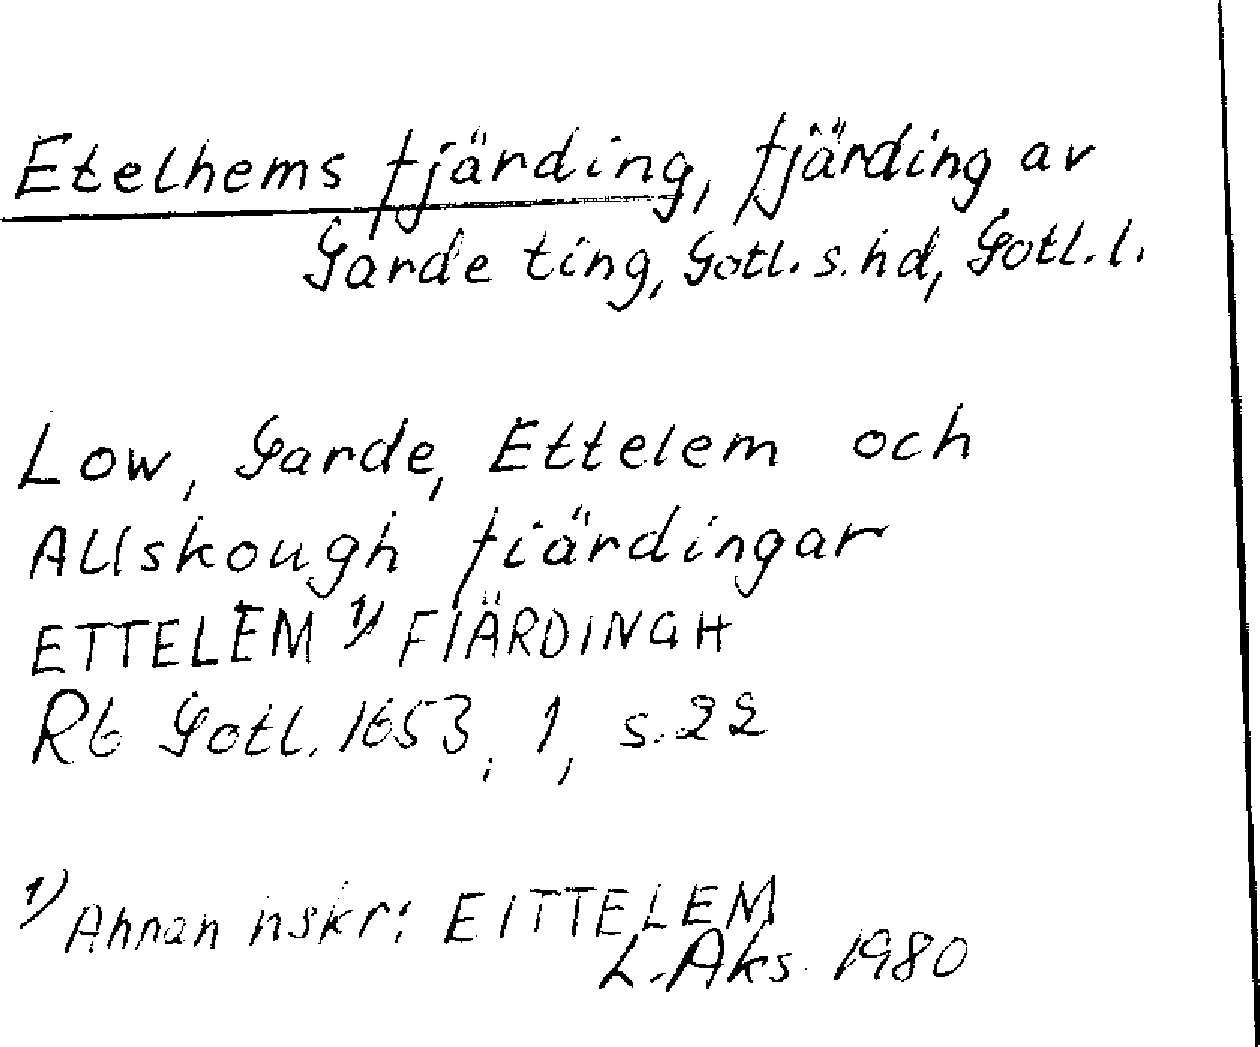 Etelhems fjärding, fjärding av
Garde ting, Gotl. s. hd, Gotl. l.
Low, Garde, Ettelem och
Allskough fiärdingar
ETTELEM 1) FIÄRDINGH
Rb Gotl. 1653, 1, s. 22
1) Annan hskr: EITTELEM
L. Aks. 1980